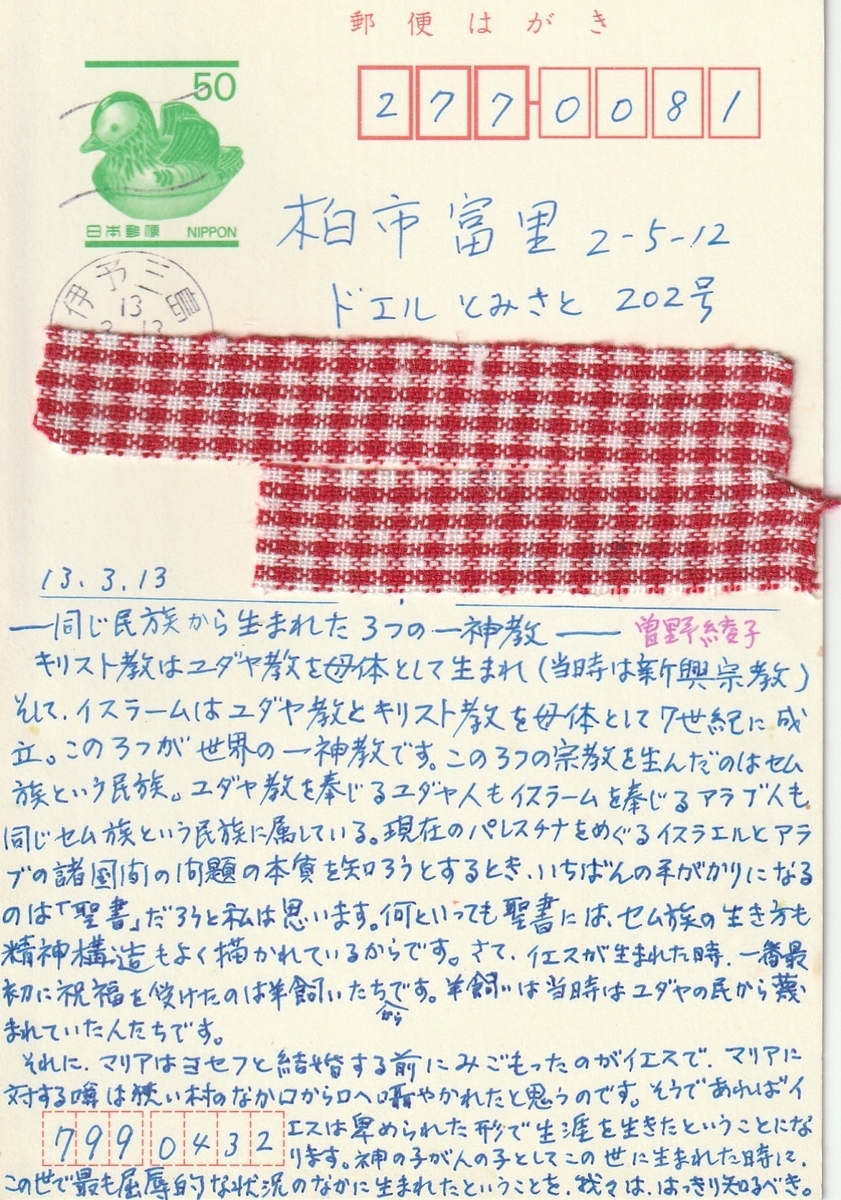 郵便はがき
50
日本郵便 NIPPON
277-0081
柏市富里 2-5-12
ドエル とみさと 202号
伊予三島
13
13.3.13
―同じ民族から生まれた3つの一神教― 曽野綾子
キリスト教はユダヤ教を母体として生まれ(当時は新興宗教)
そして、イスラームはユダヤ教とキリスト教を母体として7世紀に成
立。この3つが世界の一神教です。この3つの宗教を生んだのはセム
族という民族。ユダヤ教を奉じるユダヤ人もイスラームを奉じるアラブ人も、
同じセム族という民族に属している。現在のパレスチナをめぐるイスラエルとアラ
ブの諸国間の問題の本質を知ろうとするとき、いちばんの手がかりになる
のは「聖書」だろうと私は思います。何といっても聖書には、セム族の生き方も
精神構造もよく描かれているからです。さて、イエスが生まれた時、一番最
初に祝福を受けたのは羊飼いたちです。羊飼いは当時はユダヤの民から蔑
から
まれていた人たちです。
それに、マリアはヨセフと結婚する前にみごもったのがイエスで、マリアに
対する噂は狭い村のなか口から口へ囁やかれたと思うのです。そうであればイ
エスは卑められた形で生涯を生きたということにな
ります。神の子が人の子としてこの世に生まれた時に、
この世で最も屈辱的な状況のなかに生まれたということを、我々は、はっきり知るべき。
799 0432